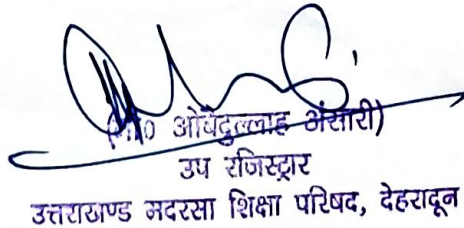 (मो0 ओबेदुल्लाह अंसारी)
उप रजिस्ट्रार
उत्तराखण्ड मदरसा शिक्षा परिषद, देहरादून